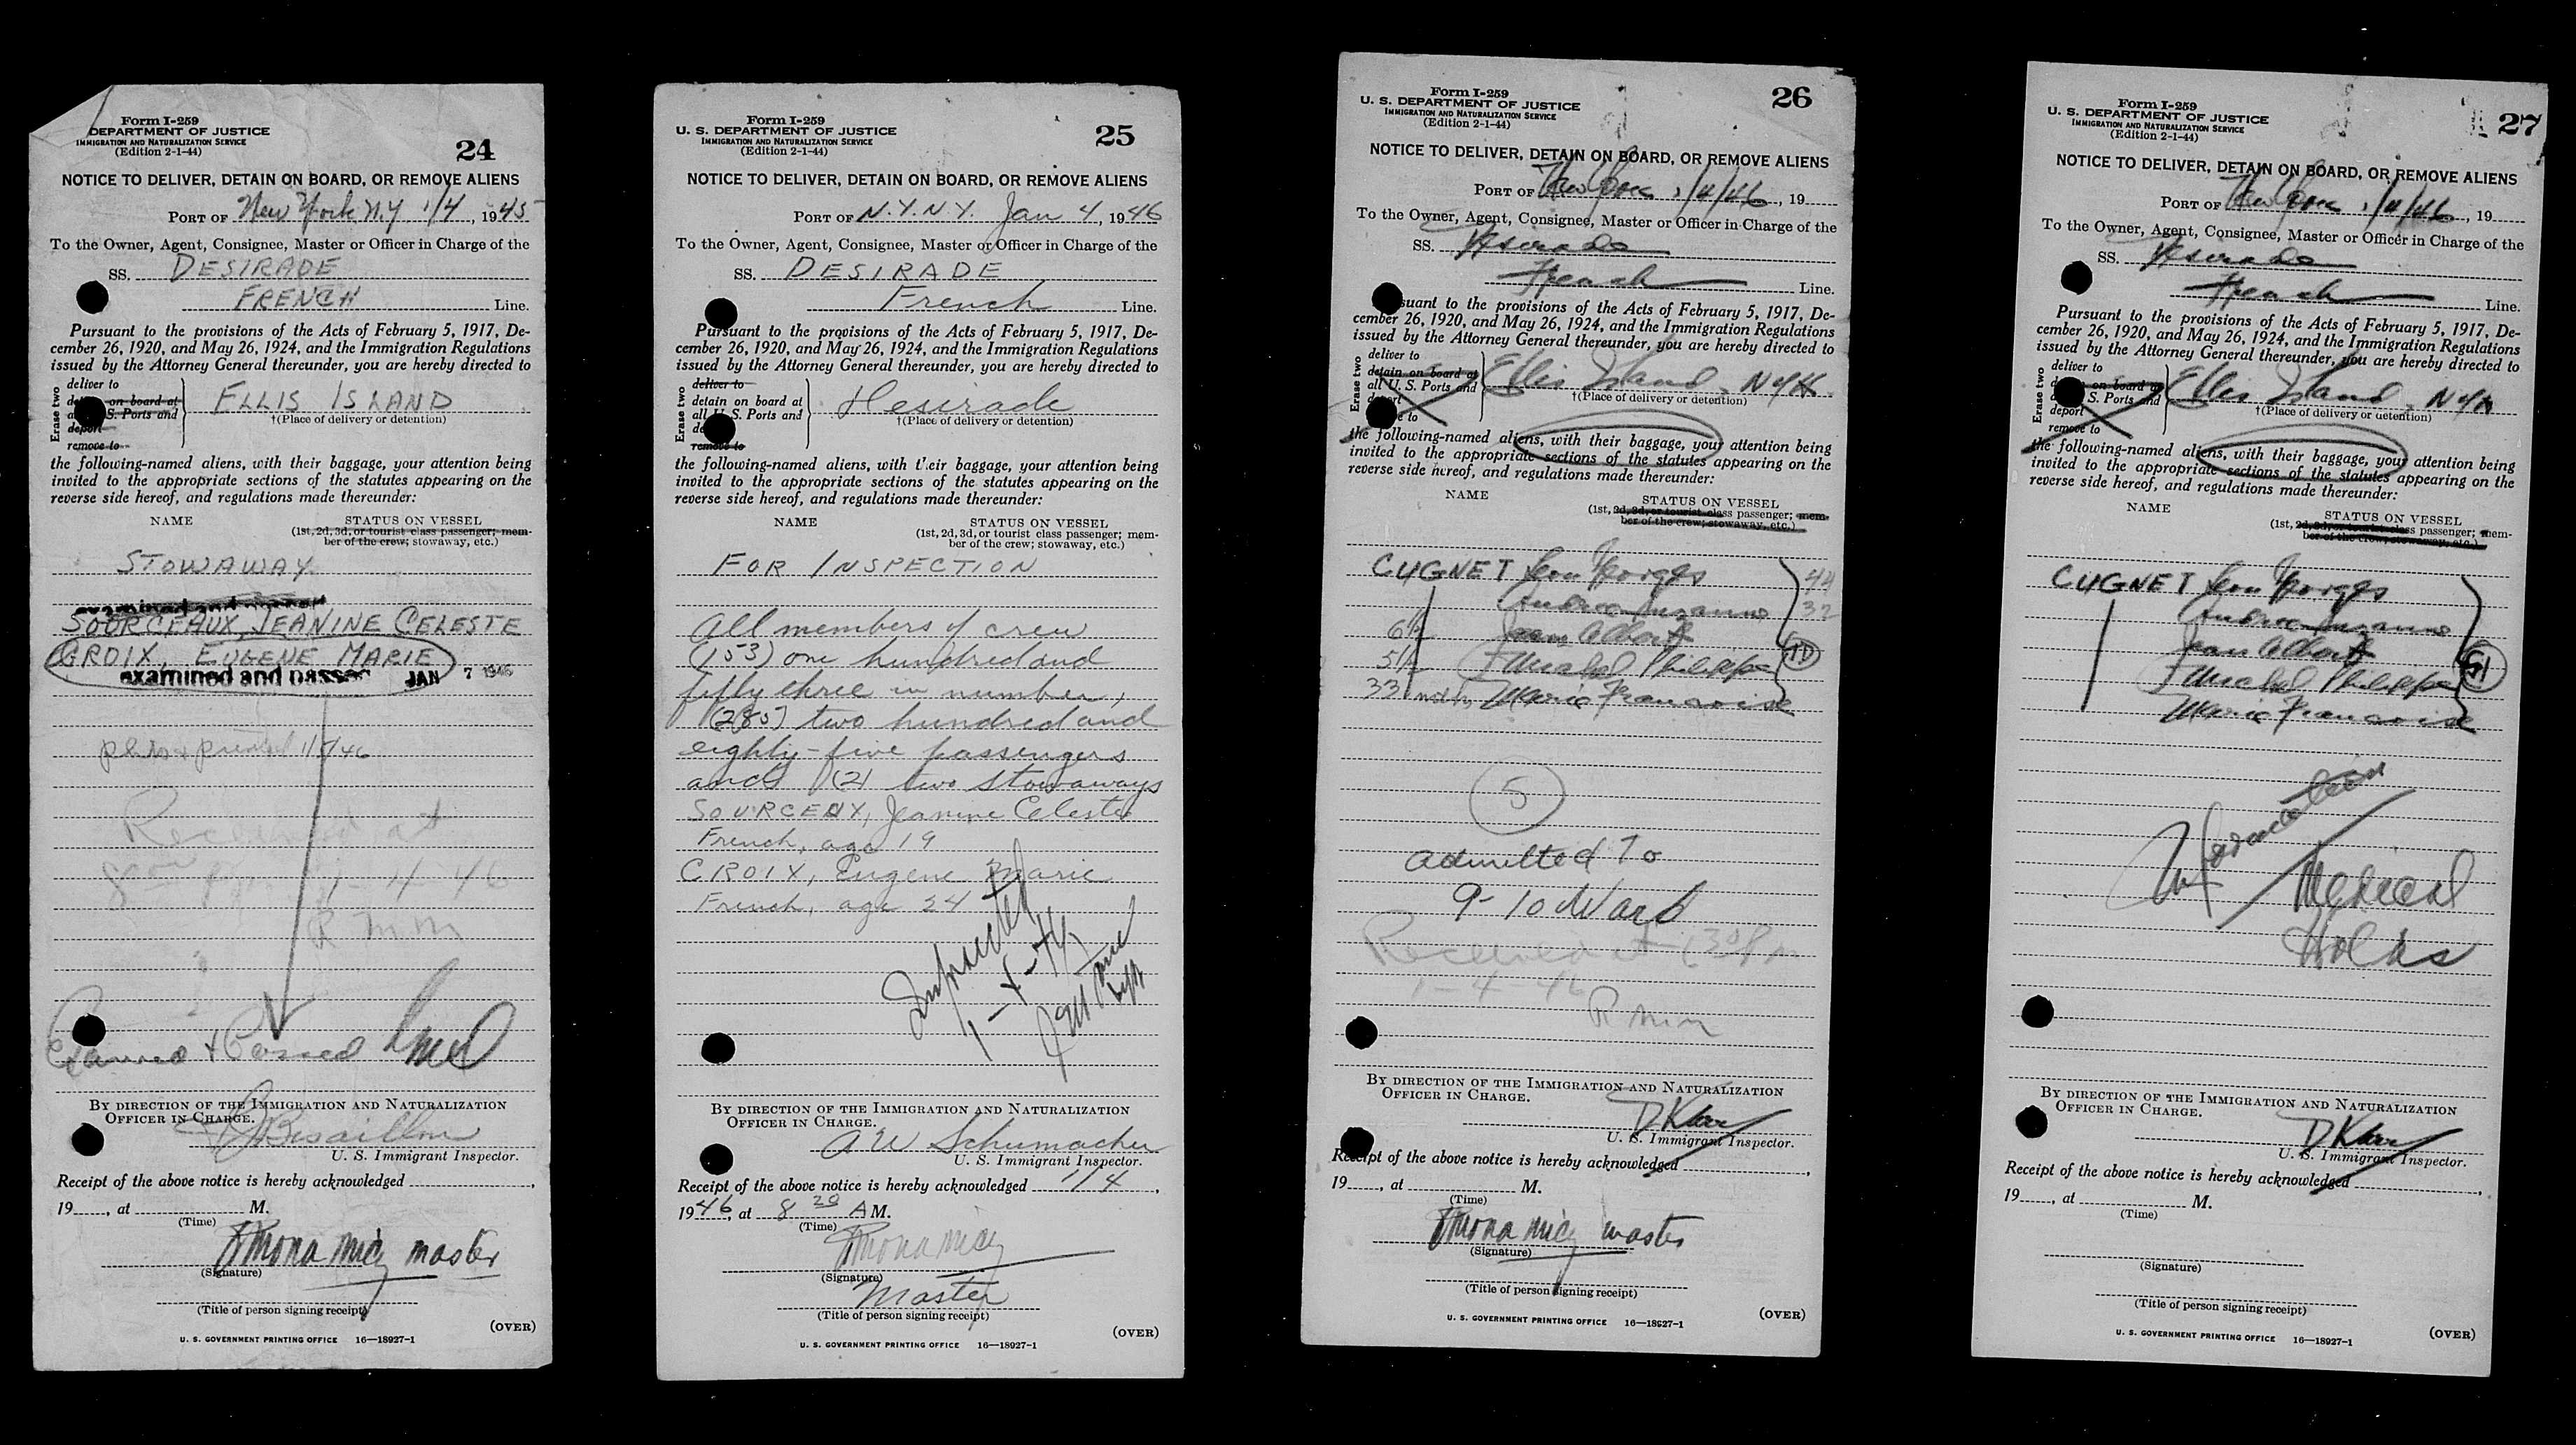 Form I-259
DEPARTMENT OF JUSTICE
IMMIGRATION AND NATURALIZATION SERVICE
(Edition 2-1-44)
24
NOTICE TO DELIVER, DETAIN ON BOARD, OR REMOVE ALIENS
PORT OF New York N.Y 1/4, 1945
To the Owner, Agent, Consignee, Master or Officer in Charge of the
SS. DESIRADE
FRENCH Line.
Pursuant to the provisions of the Acts of February 5, 1917, De-
cember 26, 1920, and May 26, 1924, and the Immigration Regulations
issued by the Attorney General thereunder, you are hereby directed to
Erase two
deliver to
on board at
S. Ports and
deport
remove to
ELLIS ISLAND
†(Place of delivery or detention)
the following-named aliens, with their baggage, your attention being
invited to the appropriate sections of the statutes appearing on the
reverse side hereof, and regulations made thereunder:
NAME
STATUS ON VESSEL
(1st, 2d, 3d, or tourist class passenger; mem-
ber of the crew; stowaway, etc.)
STOWAWAY
examined and passed
SOURCEAUX, JEANINE CELESTE
CROIX, EUGENE MARIE
examined and passed JAN 7 1946
Received at
1-4-46
R mm
Examined & Passed
BY DIRECTION OF THE IMMIGRATION AND NATURALIZATION
OFFICER IN CHARGE.
U. S. Immigrant Inspector.
Receipt of the above notice is hereby acknowledged
19, at M.
(Time)
master
(Signature)
(Title of person signing receipt)
(OVER)
U. S. GOVERNMENT PRINTING OFFICE 16—18927-1
Form I-259
U. S. DEPARTMENT OF JUSTICE
IMMIGRATION AND NATURALIZATION SERVICE
(Edition 2-1-44)
25
NOTICE TO DELIVER, DETAIN ON BOARD, OR REMOVE ALIENS
PORT OF N.Y. N.Y. Jan 4, 1946
To the Owner, Agent, Consignee, Master or Officer in Charge of the
SS. DESIRADE
French Line.
Pursuant to the provisions of the Acts of February 5, 1917, De-
cember 26, 1920, and May 26, 1924, and the Immigration Regulations
issued by the Attorney General thereunder, you are hereby directed to
Erase two
deliver to
detain on board at
all U. S. Ports and
remove to
Desirade
†(Place of delivery or detention)
the following-named aliens, with their baggage, your attention being
invited to the appropriate sections of the statutes appearing on the
reverse side hereof, and regulations made thereunder:
NAME
STATUS ON VESSEL
(1st, 2d, 3d, or tourist class passenger; mem-
ber of the crew; stowaway, etc.)
FOR INSPECTION
All members of crew
(153) one hundred and
fifty three in number,
(285) two hundred and
eighty-five passengers
and (2) two stowaways
SOURCEUX, Jeanine Celeste
French, age 19
CROIX, Eugene Marie
French, age 24
Inspected
BY DIRECTION OF THE IMMIGRATION AND NATURALIZATION
OFFICER IN CHARGE.
A W Schumacher
U. S. Immigrant Inspector.
Receipt of the above notice is hereby acknowledged 1/4,
1946, at 8 20 A M.
(Time)
(Signature)
Master
(Title of person signing receipt)
(OVER)
U. S. GOVERNMENT PRINTING OFFICE 16—18927-1
Form I-259
U. S. DEPARTMENT OF JUSTICE
IMMIGRATION AND NATURALIZATION SERVICE
(Edition 2-1-44)
26
NOTICE TO DELIVER, DETAIN ON BOARD, OR REMOVE ALIENS
PORT OF New York 1/4/46, 19
To the Owner, Agent, Consignee, Master or Officer in Charge of the
SS. Desirade
French Line.
suant to the provisions of the Acts of February 5, 1917, De-
cember 26, 1920, and May 26, 1924, and the Immigration Regulations
issued by the Attorney General thereunder, you are hereby directed to
Erase two
deliver to
detain on board at
all U. S. Ports and
deport
e to
Ellis Island, N.Y.
†(Place of delivery or detention)
the following-named aliens, with their baggage, your attention being
invited to the appropriate sections of the statutes appearing on the
reverse side hereof, and regulations made thereunder:
NAME
STATUS ON VESSEL
(1st, 2d, 3d, or tourist class passenger; mem-
ber of the crew; stowaway, etc.)
CUGNET Leon Georges 44
Andree Suzanne 32
Jean Albert
Michel Philippe
Marie Francoise
5
admitted To
9-10 Ward
Received at 130 Pm
1-4-46
R mm
BY DIRECTION OF THE IMMIGRATION AND NATURALIZATION
OFFICER IN CHARGE.
U. S. Immigrant Inspector.
Receipt of the above notice is hereby acknowledged
19, at M.
(Time)
master
(Signature)
(Title of person signing receipt)
(OVER)
U. S. GOVERNMENT PRINTING OFFICE 16—18927-1
Form I-259
U. S. DEPARTMENT OF JUSTICE
IMMIGRATION AND NATURALIZATION SERVICE
(Edition 2-1-44)
27
NOTICE TO DELIVER, DETAIN ON BOARD, OR REMOVE ALIENS
PORT OF New York 1/4/46, 19
To the Owner, Agent, Consignee, Master or Officer in Charge of the
SS. Desirade
French Line.
Pursuant to the provisions of the Acts of February 5, 1917, De-
cember 26, 1920, and May 26, 1924, and the Immigration Regulations
issued by the Attorney General thereunder, you are hereby directed to
Erase two
deliver to
on board at
S. Ports and
deport
remove to
Ellis Island, N.Y.
†(Place of delivery or detention)
the following-named aliens, with their baggage, your attention being
invited to the appropriate sections of the statutes appearing on the
reverse side hereof, and regulations made thereunder:
NAME
STATUS ON VESSEL
(1st, 2d, 3d, or tourist class passenger; mem-
ber of the crew; stowaway, etc.)
CUGNET Leon Georges
Andree Suzanne
Jean Albert
Michel Philippe
Marie Francoise
Medical
Holds
BY DIRECTION OF THE IMMIGRATION AND NATURALIZATION
OFFICER IN CHARGE.
U. S. Immigrant Inspector.
Receipt of the above notice is hereby acknowledged
19, at M.
(Time)
(Signature)
(Title of person signing receipt)
(OVER)
U. S. GOVERNMENT PRINTING OFFICE 16—18927-1